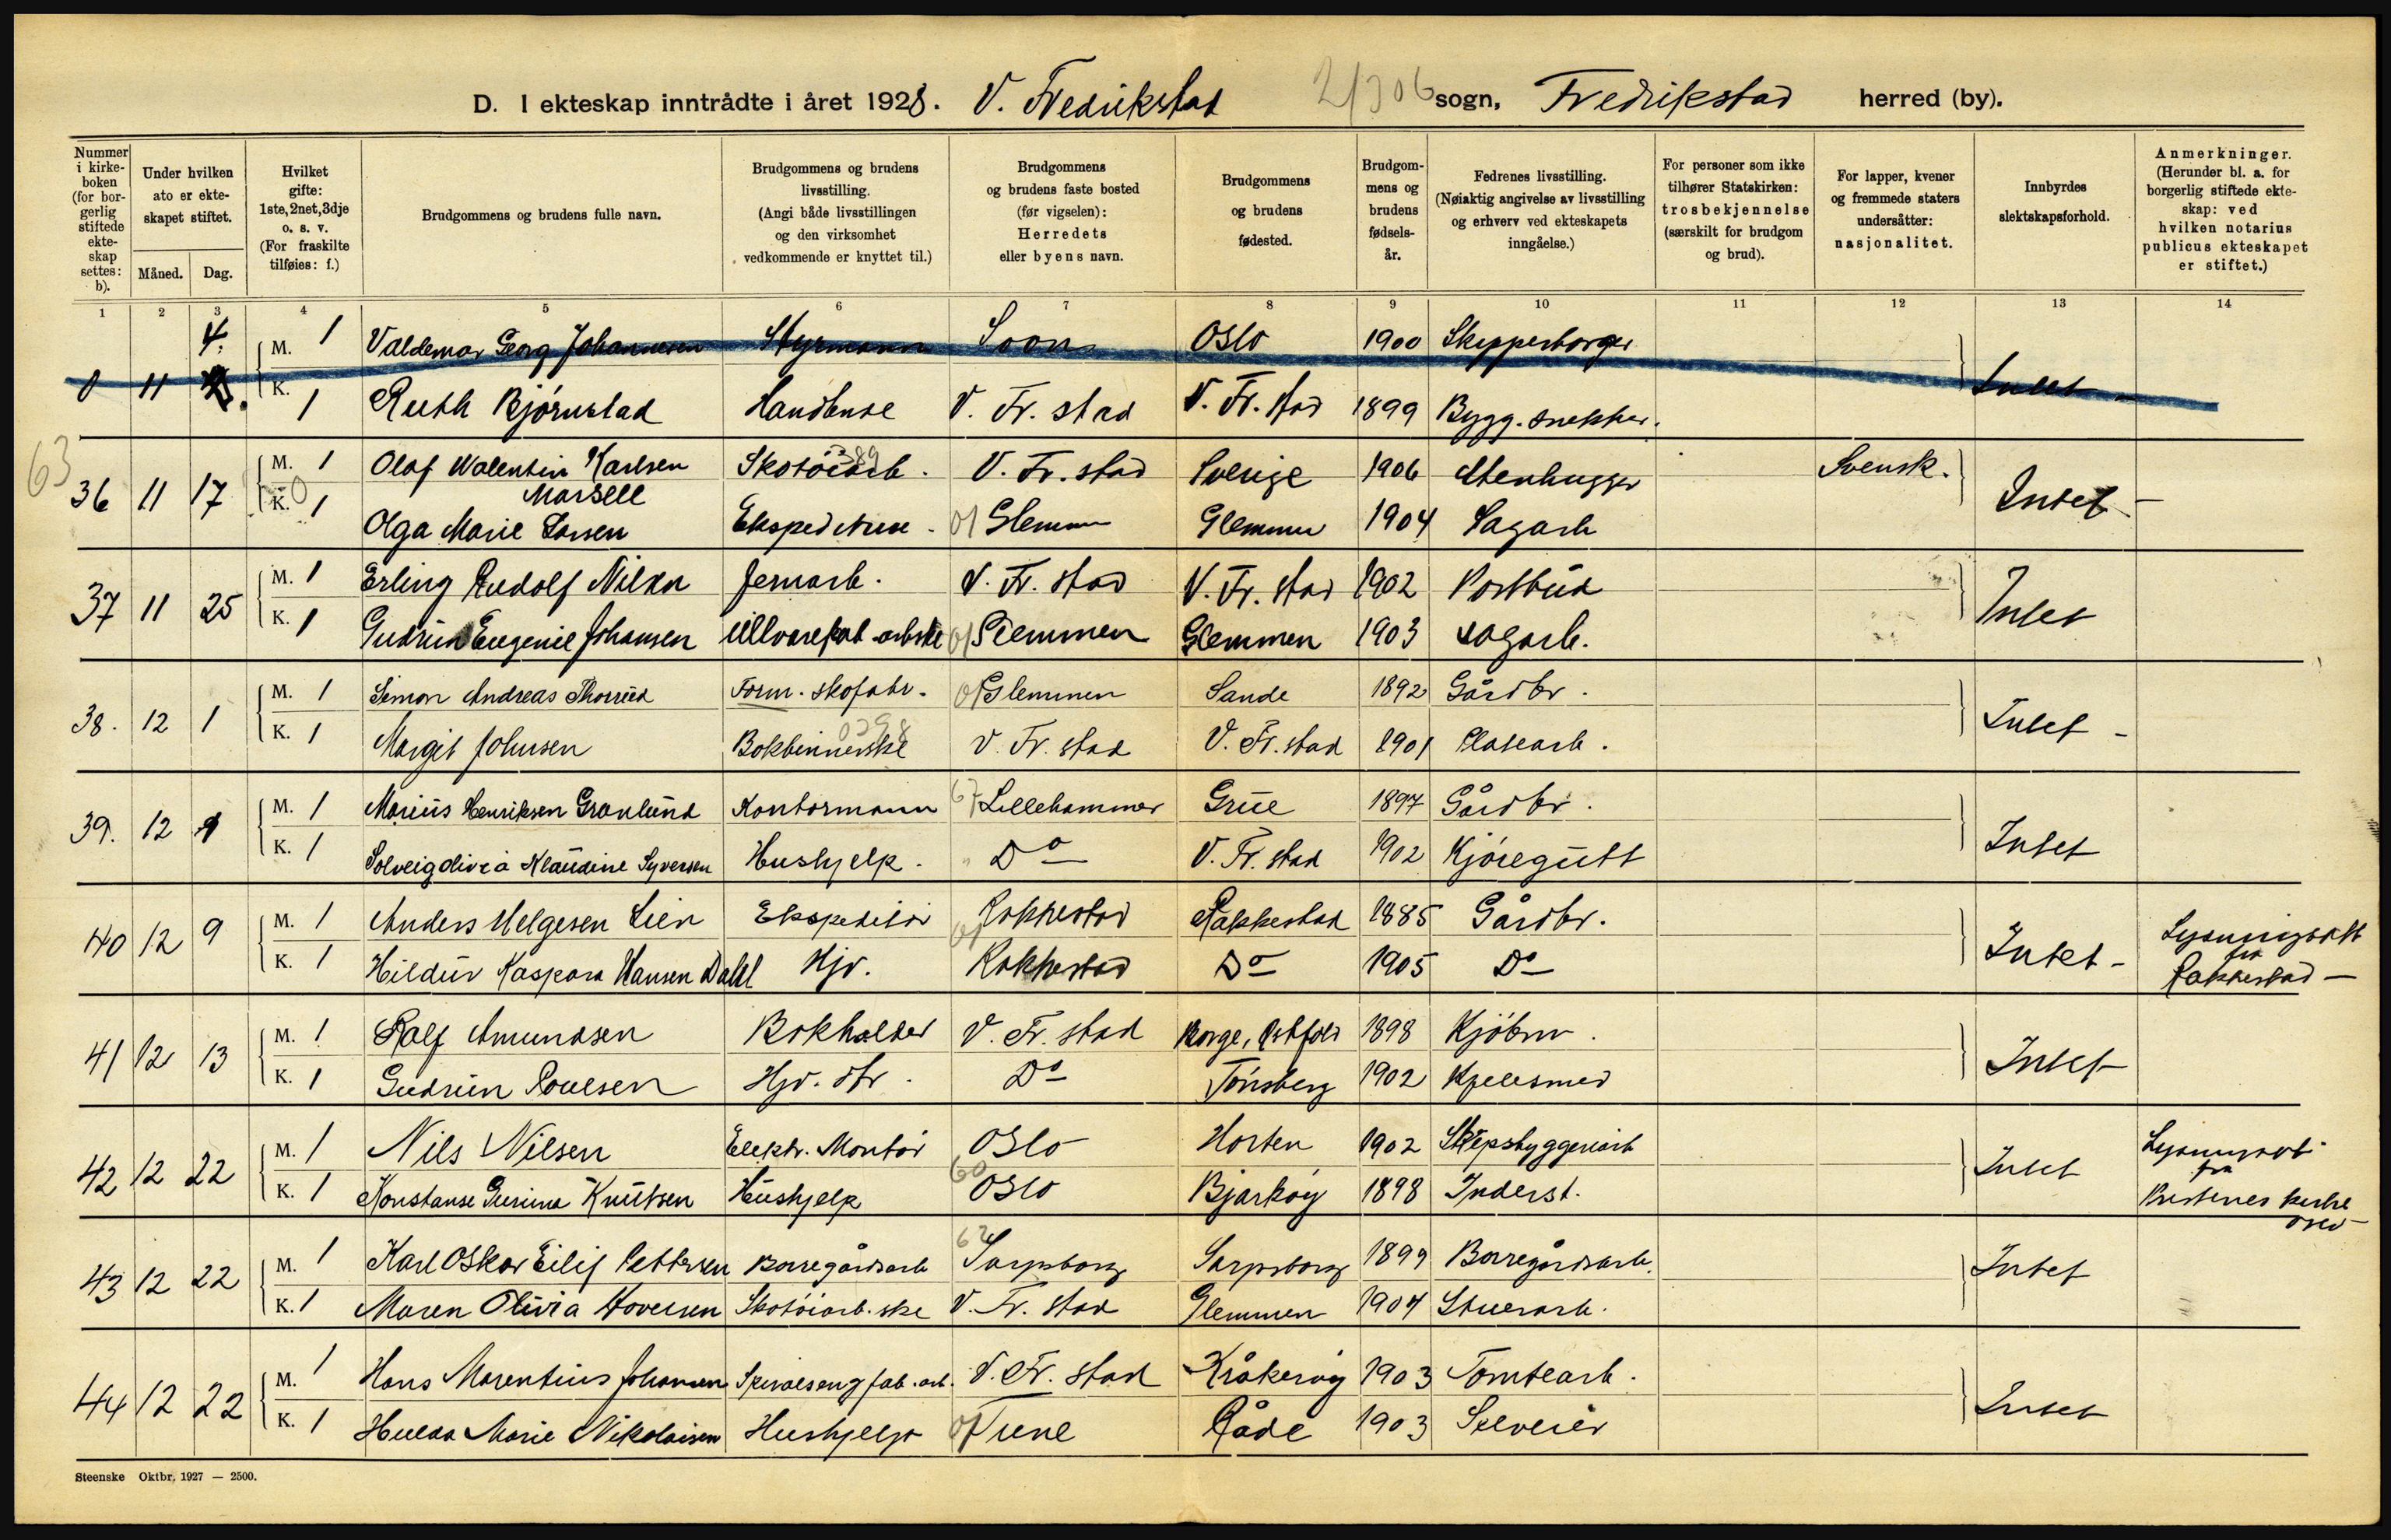 D. I ekteskap inntrådte i året 1928. V. Fredrikstad 2/306 sogn, Fredrikstad herred (by).
Nummer i kirkeboken (for borgerlig stiftede ekteskap settes: b).
Under hvilken ato er ekteskapet stiftet.
Måned. Dag.
Hvilket gifte: 1ste, 2net, 3dje o. s. v. (For fraskilte tilføies: f.)
Brudgommens og brudens fulle navn.
Brudgommens og brudens livsstilling. (Angi både livsstillingen og den virksomhet vedkommende er knyttet til.)
Brudgommens og brudens faste bosted (før vigselen): Herredets eller byens navn.
Brudgommens og brudens fødested.
Brudgommens og brudens fødselsår.
Fedrenes livsstilling. (Nøiaktig angivelse av livsstilling og erhverv ved ekteskapets inngåelse.)
For personer som ikke tilhører Statskirken: trosbekjennelse (særskilt for brudgom og brud).
For lapper, kvener og fremmede staters undersåtter: nasjonalitet.
Innbyrdes slektskapsforhold.
Anmerkninger. (Herunder bl. a. for borgerlig stiftede ekteskap: ved hvilken notarius publicus ekteskapet er stiftet.)
1 2 3 4 5 6 7 8 9 10 11 12 13 14
0 11 4. M. 1 Valdemar Georg Johannesen Styrmann Soon Oslo 1900 Skipperborger Intet
K. 1 Ruth Bjørnstad Handlende V. Fr. stad V. Fr. stad 1899 Bygg. snekker.
63
36 11 17 M. 1 Olaf Walentin Karlsen Marsell Skotøiarb. V. Fr. stad Sverige 1906 Stenhugger Svensk. Intet -
K. 1 Olga Marie Larsen Ekspeditrise - 01 Glemmen Glemmen 1904 Sagarb
37 11 25 M. 1 Erling Rudolf Nilsen Jernarb. V. Fr. stad V. Fr. stad 1902 Postbud Intet
K. 1 Gudrun Eugenie Johansen Ullvarefab. arbske 01 Glemmen Glemmen 1903 Sagarb.
38. 12 1 M. 1 Simon Andreas Thorrud Form. skofabr. 01 Glemmen Sande 1892 Gårdbr. Intet -
K. 1 Margit Johnsen Bokbinnerske V. Fr. stad V. Fr. stad 1901 Platearb.
39. 12 9 M. 1 Marius Henriksen Granlund Kontormann 67 Lillehammer Grue 1897 Gårdbr. Intet
K. 1 Solveig Klaudine Syversen Hushjelp. Do V. Fr. stad 1902 Kjøregutt
40 12 9 M. 1 Anders Helgesen Lien Ekspeditør Rakkestad Rakkestad 1885 Gårdbr. Intet - Lysningsatt fra Rakkestad -
K. 1 Hildur Kaspara Hansen Dahl Hjv. Rakkestad Do 1905 Do
41 12 13 M. 1 Ralf Amundsen Bokholder V. Fr. stad Borge, Østfold 1898 Kjøbm. Intet
K. 1 Gudrun Poulsen Hjv. dtr. Do Tønsberg 1902 Kjelesmed
42 12 22 M. 1 Nils Nilsen Elektr. Montør Oslo Horten 1902 Skipsbyggeriarb Intet Lysningsatt fra kirke Oslo -
K. 1 Konstanse Gurina Knutsen Hushjelp 60 Oslo Bjarkøy 1898 Inderst.
43 12 22 M. 1 Karl Oskar Eilif Pettersen Borregårdsarb 62 Sarpsborg Sarpsborg 1899 Borregårdsarb. Intet
K. 1 Maren Olivia Hovelsen Skotøiarb.ske V. Fr. stad Glemmen 1904 Stuerarb.
44 12 22 M. 1 Hans Marentius Johansen Spiralsengfab. arb. V. Fr. stad Kråkerøy 1903 Tomtearb. Intet
K. 1 Hulda Marie Nikolaisen Hushjelp 01 Tune Råde 1903 Selveier
Steenske Oktbr. 1927 — 2500.